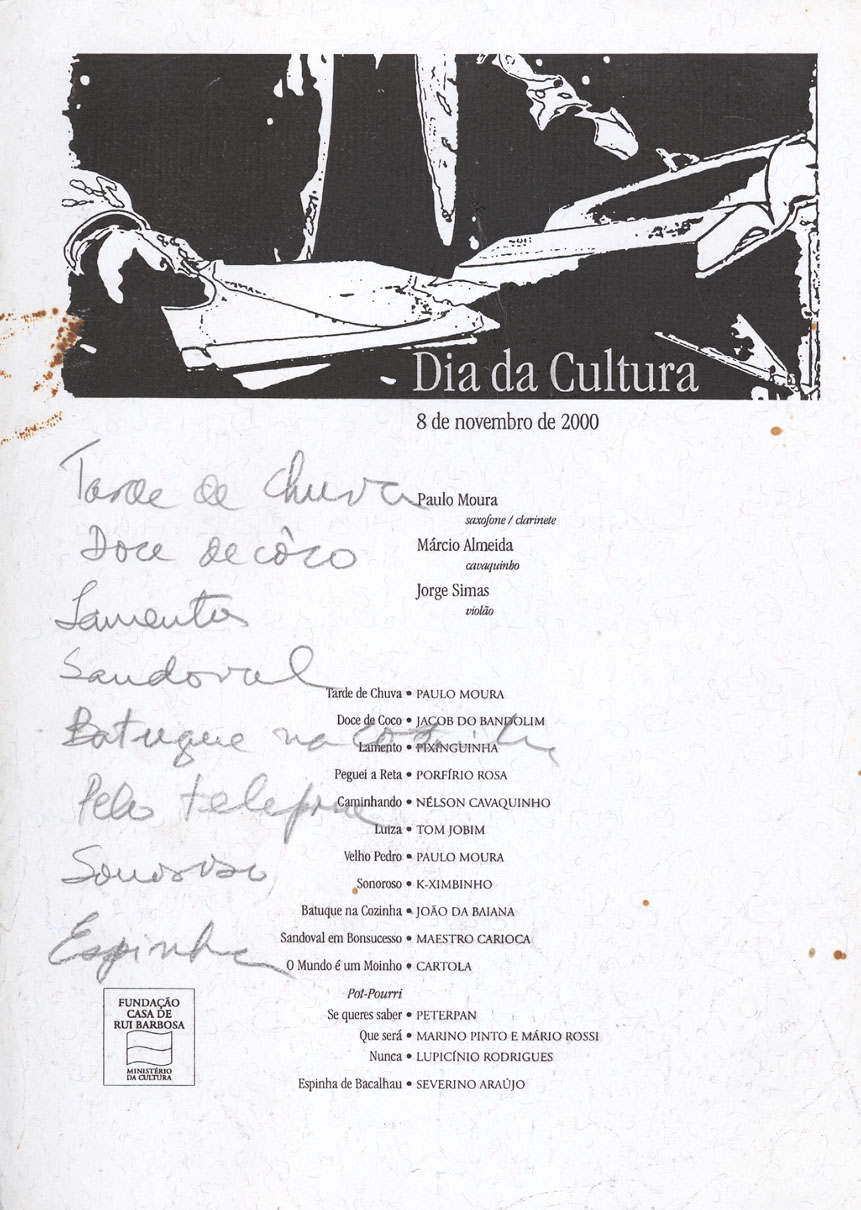 Dia da Cultura
8 de novembro de 2000
Tarde de Chuva
Doce de côco
Lamentos
Sandoval
Batuque na cozinha
Pelo telefone
Sonoroso
Espinha
Paulo Moura
saxofone / clarinete
Márcio Almeida
cavaquinho
Jorge Simas
violão
Tarde de Chuva • PAULO MOURA
Doce de Coco • JACOB DO BANDOLIM
Lamento • PIXINGUINHA
Peguei a Reta • PORFÍRIO ROSA
Caminhando • NÉLSON CAVAQUINHO
Luiza • TOM JOBIM
Velho Pedro • PAULO MOURA
Sonoroso • K-XIMBINHO
Batuque na Cozinha • JOÃO DA BAIANA
Sandoval em Bonsucesso • MAESTRO CARIOCA
O Mundo é um Moinho • CARTOLA
Pot-Pourri
Se queres saber • PETERPAN
Que será • MARINO PINTO E MÁRIO ROSSI
Nunca • LUPICÍNIO RODRIGUES
Espinha de Bacalhau • SEVERINO ARAÚJO
FUNDAÇÃO
CASA DE
RUI BARBOSA
MINISTÉRIO
DA CULTURA